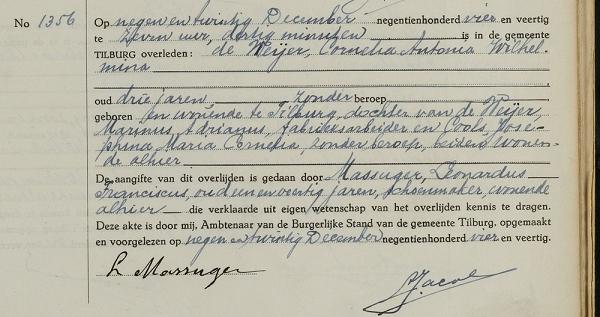 No 1356
Op negen en twintig December negentienhonderd vier en veertig
te zeven uur, dertig minuten is in de gemeente
TILBURG overleden: de Weijer, Cornelia Antonia Wilhel-
mina
oud drie jaren zonder beroep
geboren en wonende te Tilburg, dochter van de Weijer,
Marinus, Adrianus, fabrieksarbeider en Cools, Jose-
phina Maria Cornelia, zonder beroep, beiden wonen-
de alhier
De aangifte van dit overlijden is gedaan door Massuger, Leonardus
Franciscus, oud een en veertig jaren, schoenmaker, wonende
alhier die verklaarde uit eigen wetenschap van het overlijden kennis te dragen.
Deze akte is door mij, Ambtenaar van de Burgerlijke Stand van de gemeente Tilburg, opgemaakt
en voorgelezen op negen en twintig December negentienhonderd vier en veertig.
L Massuger
Jacob